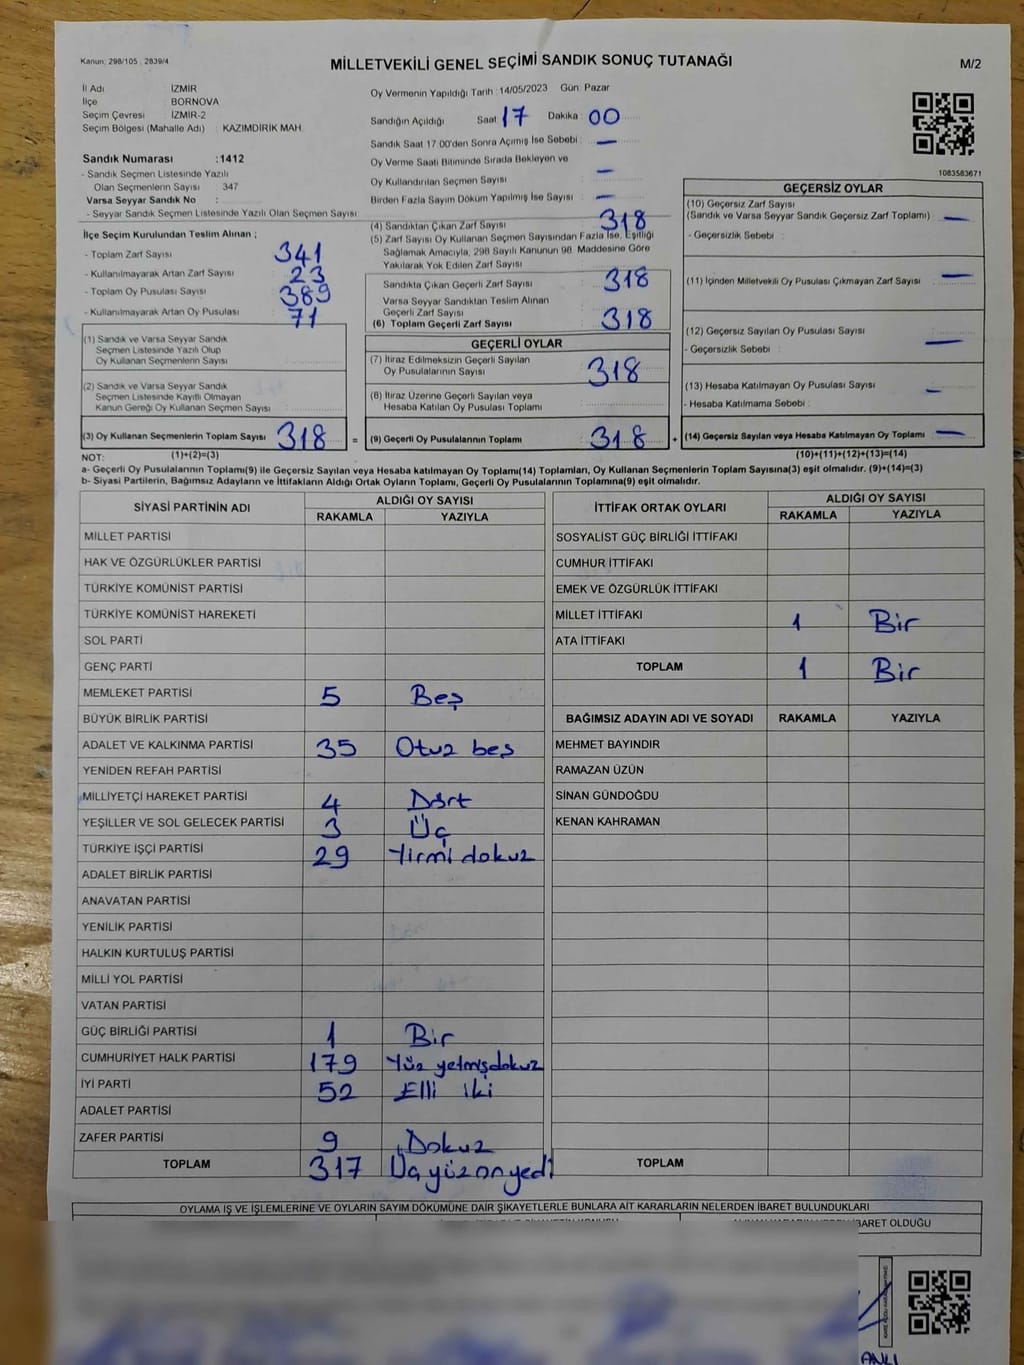 Kanun: 298/105 , 2839/4
MİLLETVEKİLİ GENEL SEÇİMİ SANDIK SONUÇ TUTANAĞI
M/2
İl Adı İZMİR
İlçe BORNOVA
Seçim Çevresi İZMİR-2
Seçim Bölgesi (Mahalle Adı) : KAZIMDİRİK MAH.
Sandık Numarası :1412
- Sandık Seçmen Listesinde Yazılı
Olan Seçmenlerin Sayısı 347
Varsa Seyyar Sandık No :
- Seyyar Sandık Seçmen Listesinde Yazılı Olan Seçmen Sayısı
İlçe Seçim Kurulundan Teslim Alınan ;
- Toplam Zarf Sayısı 341
- Kullanılmayarak Artan Zarf Sayısı 23
- Toplam Oy Pusulası Sayısı 389
- Kullanılmayarak Artan Oy Pusulası 71
(1) Sandık ve Varsa Seyyar Sandık
Seçmen Listesinde Yazılı Olup
Oy Kullanan Seçmenlerin Sayısı
(2) Sandık ve Varsa Seyyar Sandık
Seçmen Listesinde Kayıtlı Olmayan
Kanun Gereği Oy Kullanan Seçmen Sayısı
(3) Oy Kullanan Seçmenlerin Toplam Sayısı 318 =
Oy Vermenin Yapıldığı Tarih :14/05/2023 Gün: Pazar
Sandığın Açıldığı Saat 17 Dakika 00
Sandık Saat 17.00'den Sonra Açımış İse Sebebi : —
Oy Verme Saati Bitiminde Sırada Bekleyen ve
Oy Kullandırılan Seçmen Sayısı —
Birden Fazla Sayım Döküm Yapılmış İse Sayısı —
(4) Sandıktan Çıkan Zarf Sayısı 318
(5) Zarf Sayısı Oy Kullanan Seçmen Sayısından Fazla İse, Eşitliği
Sağlamak Amacıyla, 298 Sayılı Kanunun 98. Maddesine Göre
Yakılarak Yok Edilen Zarf Sayısı
Sandıkta Çıkan Geçerli Zarf Sayısı 318
Varsa Seyyar Sandıktan Teslim Alınan
Geçerli Zarf Sayısı
(6) Toplam Geçerli Zarf Sayısı 318
GEÇERLİ OYLAR
(7) İtiraz Edilmeksizin Geçerli Sayılan
Oy Pusulalarının Sayısı 318
(8) İtiraz Üzerine Geçerli Sayılan veya
Hesaba Katılan Oy Pusulası Toplamı
(9) Geçerli Oy Pusulalarının Toplamı 318 +
1083583671
GEÇERSİZ OYLAR
(10) Geçersiz Zarf Sayısı
(Sandık ve Varsa Seyyar Sandık Geçersiz Zarf Toplamı) —
- Geçersizlik Sebebi :
(11) İçinden Milletvekili Oy Pusulası Çıkmayan Zarf Sayısı —
(12) Geçersiz Sayılan Oy Pusulası Sayısı
- Geçersizlik Sebebi : —
(13) Hesaba Katılmayan Oy Pusulası Sayısı —
- Hesaba Katılmama Sebebi :
(14) Geçersiz Sayılan veya Hesaba Katılmayan Oy Toplamı —
NOT: (1)+(2)=(3) (10)+(11)+(12)+(13)=(14)
a- Geçerli Oy Pusulalarının Toplamı(9) ile Geçersiz Sayılan veya Hesaba katılmayan Oy Toplamı(14) Toplamları, Oy Kullanan Seçmenlerin Toplam Sayısına(3) eşit olmalıdır. (9)+(14)=(3)
b- Siyasi Partilerin, Bağımsız Adayların ve İttifakların Aldığı Ortak Oyların Toplamı, Geçerli Oy Pusulalarının Toplamına(9) eşit olmalıdır.
SİYASİ PARTİNİN ADI ALDIĞI OY SAYISI
RAKAMLA YAZIYLA
MİLLET PARTİSİ
HAK VE ÖZGÜRLÜKLER PARTİSİ
TÜRKİYE KOMÜNİST PARTİSİ
TÜRKİYE KOMÜNİST HAREKETİ
SOL PARTİ
GENÇ PARTİ
MEMLEKET PARTİSİ 5 Beş
BÜYÜK BİRLİK PARTİSİ
ADALET VE KALKINMA PARTİSİ 35 Otuz beş
YENİDEN REFAH PARTİSİ
MİLLİYETÇİ HAREKET PARTİSİ 4 Dört
YEŞİLLER VE SOL GELECEK PARTİSİ 3 Üç
TÜRKİYE İŞÇİ PARTİSİ 29 Yirmi dokuz
ADALET BİRLİK PARTİSİ
ANAVATAN PARTİSİ
YENİLİK PARTİSİ
HALKIN KURTULUŞ PARTİSİ
MİLLİ YOL PARTİSİ
VATAN PARTİSİ
GÜÇ BİRLİĞİ PARTİSİ 1 Bir
CUMHURİYET HALK PARTİSİ 179 Yüz yetmişdokuz
İYİ PARTİ 52 Elli iki
ADALET PARTİSİ
ZAFER PARTİSİ 9 Dokuz
TOPLAM 317 Üçyüzonyedi
İTTİFAK ORTAK OYLARI ALDIĞI OY SAYISI
RAKAMLA YAZIYLA
SOSYALİST GÜÇ BİRLİĞİ İTTİFAKI
CUMHUR İTTİFAKI
EMEK VE ÖZGÜRLÜK İTTİFAKI
MİLLET İTTİFAKI 1 Bir
ATA İTTİFAKI
TOPLAM 1 Bir
BAĞIMSIZ ADAYIN ADI VE SOYADI RAKAMLA YAZIYLA
MEHMET BAYINDIR
RAMAZAN ÜZÜN
SİNAN GÜNDOĞDU
KENAN KAHRAMAN
TOPLAM
OYLAMA İŞ VE İŞLEMLERİNE VE OYLARIN SAYIM DÖKÜMÜNE DAİR ŞİKAYETLERLE BUNLARA AİT KARARLARIN NELERDEN İBARET BULUNDUKLARI
İBARET OLDUĞU